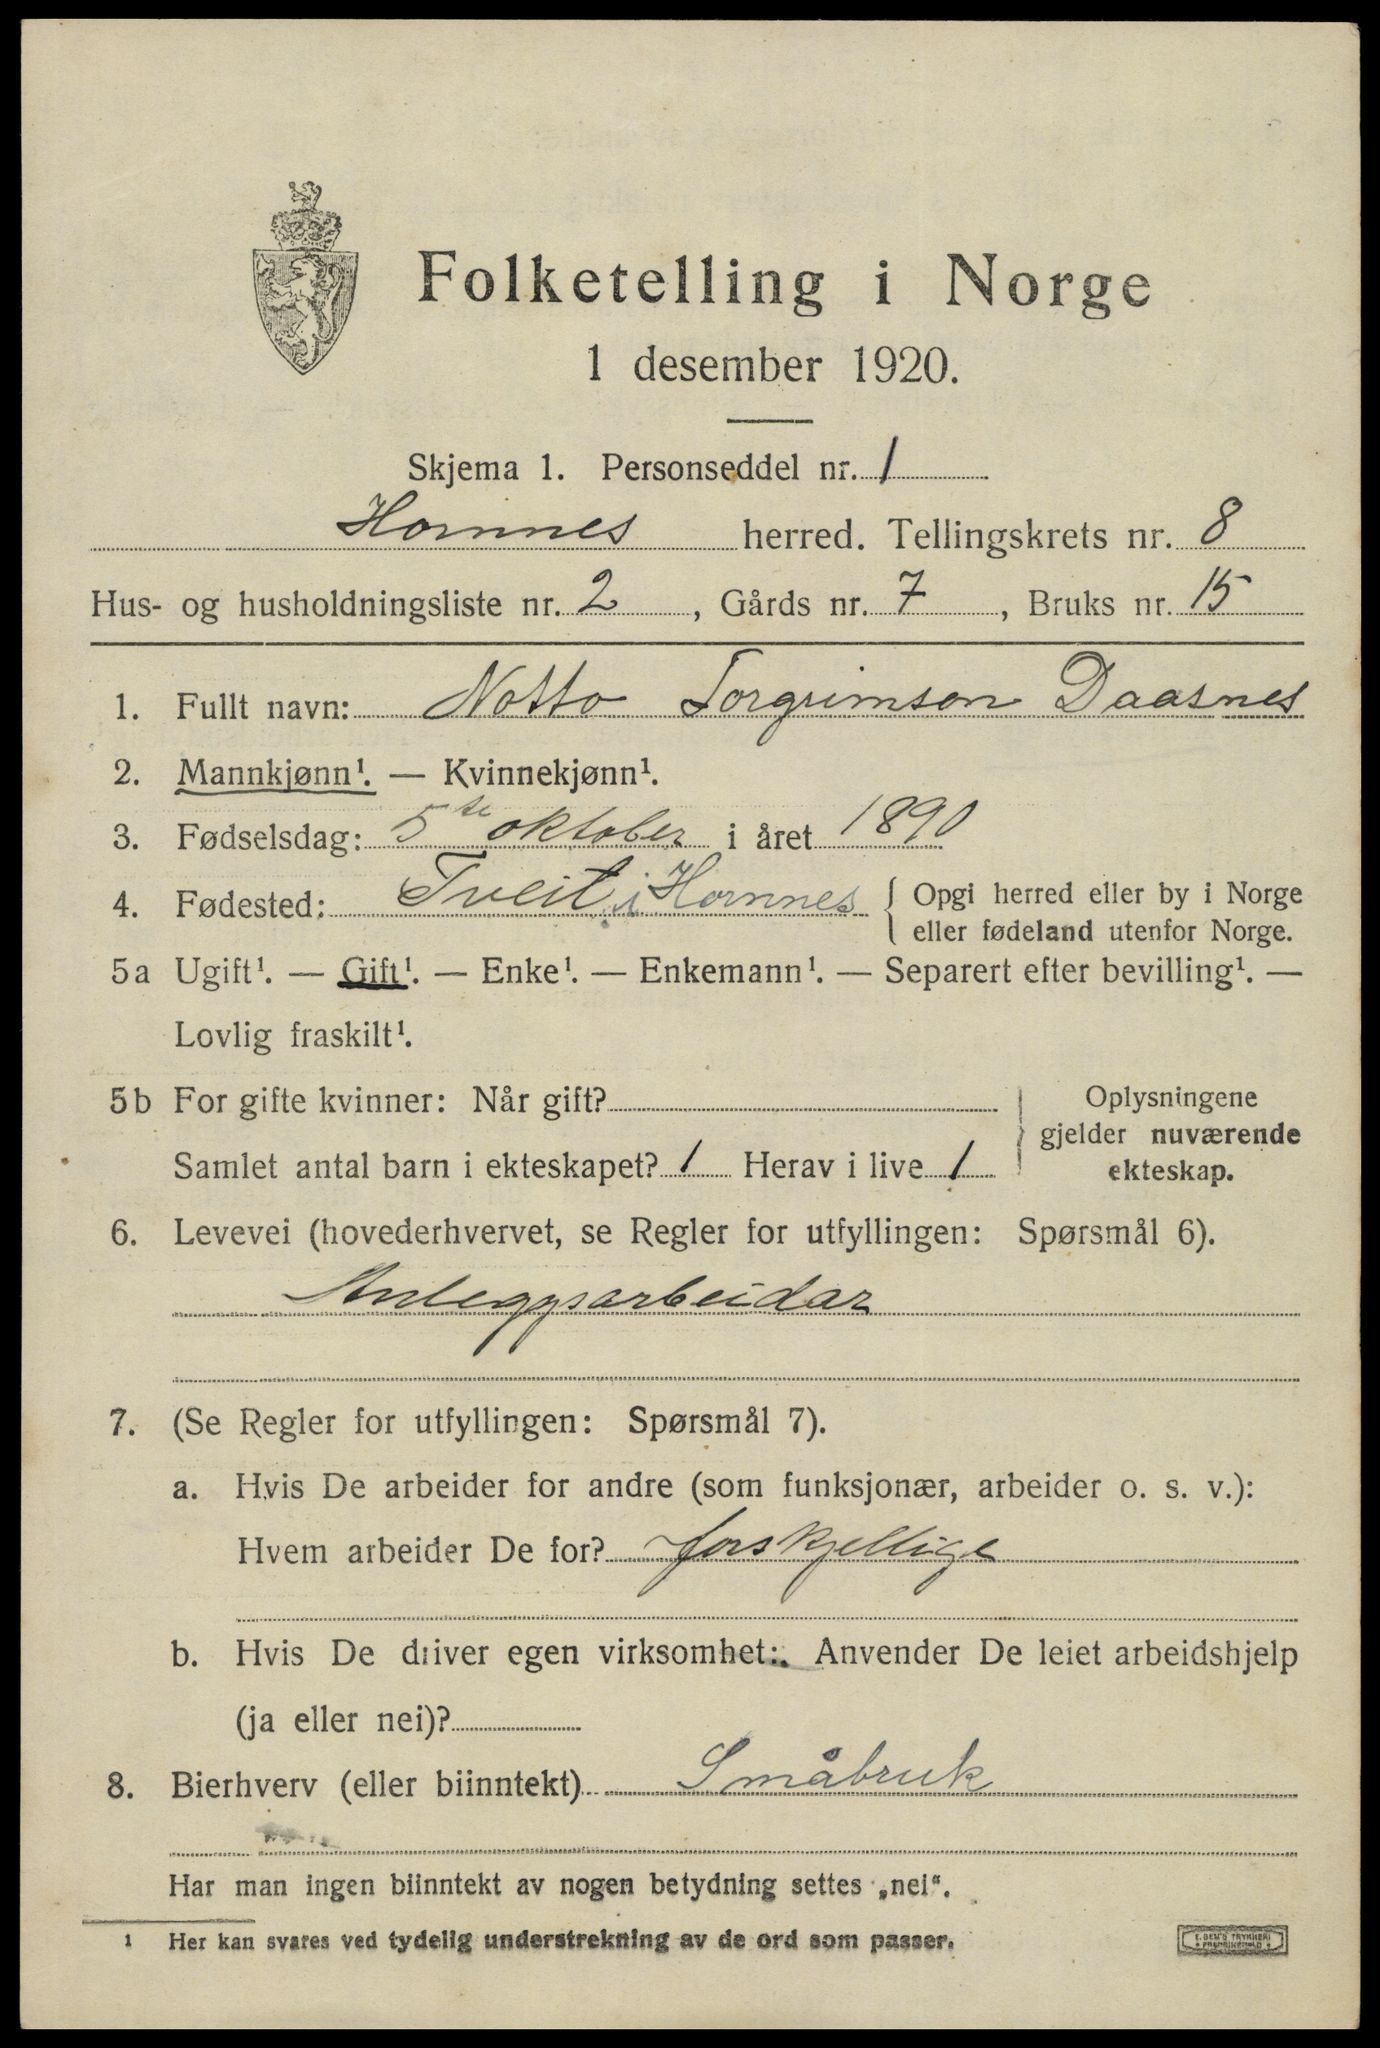 Folketelling i Norge
1 desember 1920.
Skjema 1. Personseddel nr. 1
Hornnes herred. Tellingskrets nr. 8
Hus- og husholdningsliste nr. 2, Gårds nr. 7, Bruks nr. 15
1. Fullt navn: Notto Torgrimson Daasnes
2. Mannkjønn¹. — Kvinnekjønn¹.
3. Fødselsdag: 5te oktober i året 1890
4. Fødested: Tveit i Hornnes { Opgi herred eller by i Norge
eller fødeland utenfor Norge.
5a Ugift¹. — Gift¹. — Enke¹. — Enkemann¹. — Separert efter bevilling¹. —
Lovlig fraskilt¹.
5b For gifte kvinner: Når gift?
Samlet antal barn i ekteskapet? 1 Herav i live 1
} Oplysningene
gjelder nuværende
ekteskap.
6. Levevei (hovederhvervet, se Regler for utfyllingen: Spørsmål 6).
Anleggsarbeidar
7. (Se Regler for utfyllingen: Spørsmål 7).
a. Hvis De arbeider for andre (som funksjonær, arbeider o. s. v.):
Hvem arbeider De for? forskjellige
b. Hvis De driver egen virksomhet: Anvender De leiet arbeidshjelp
(ja eller nei)?
8. Bierhverv (eller biinntekt) Småbruk
Har man ingen biinntekt av nogen betydning settes „nei“.
¹ Her kan svares ved tydelig understrekning av de ord som passer.